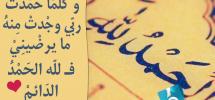 و كلّما حمدت
ربّي وجدتُ مِنهُ
ما يرضينِيْ
فـ للّه الحَمْدُ
الدّائمْ
الحَمْدُ لِلّهِ